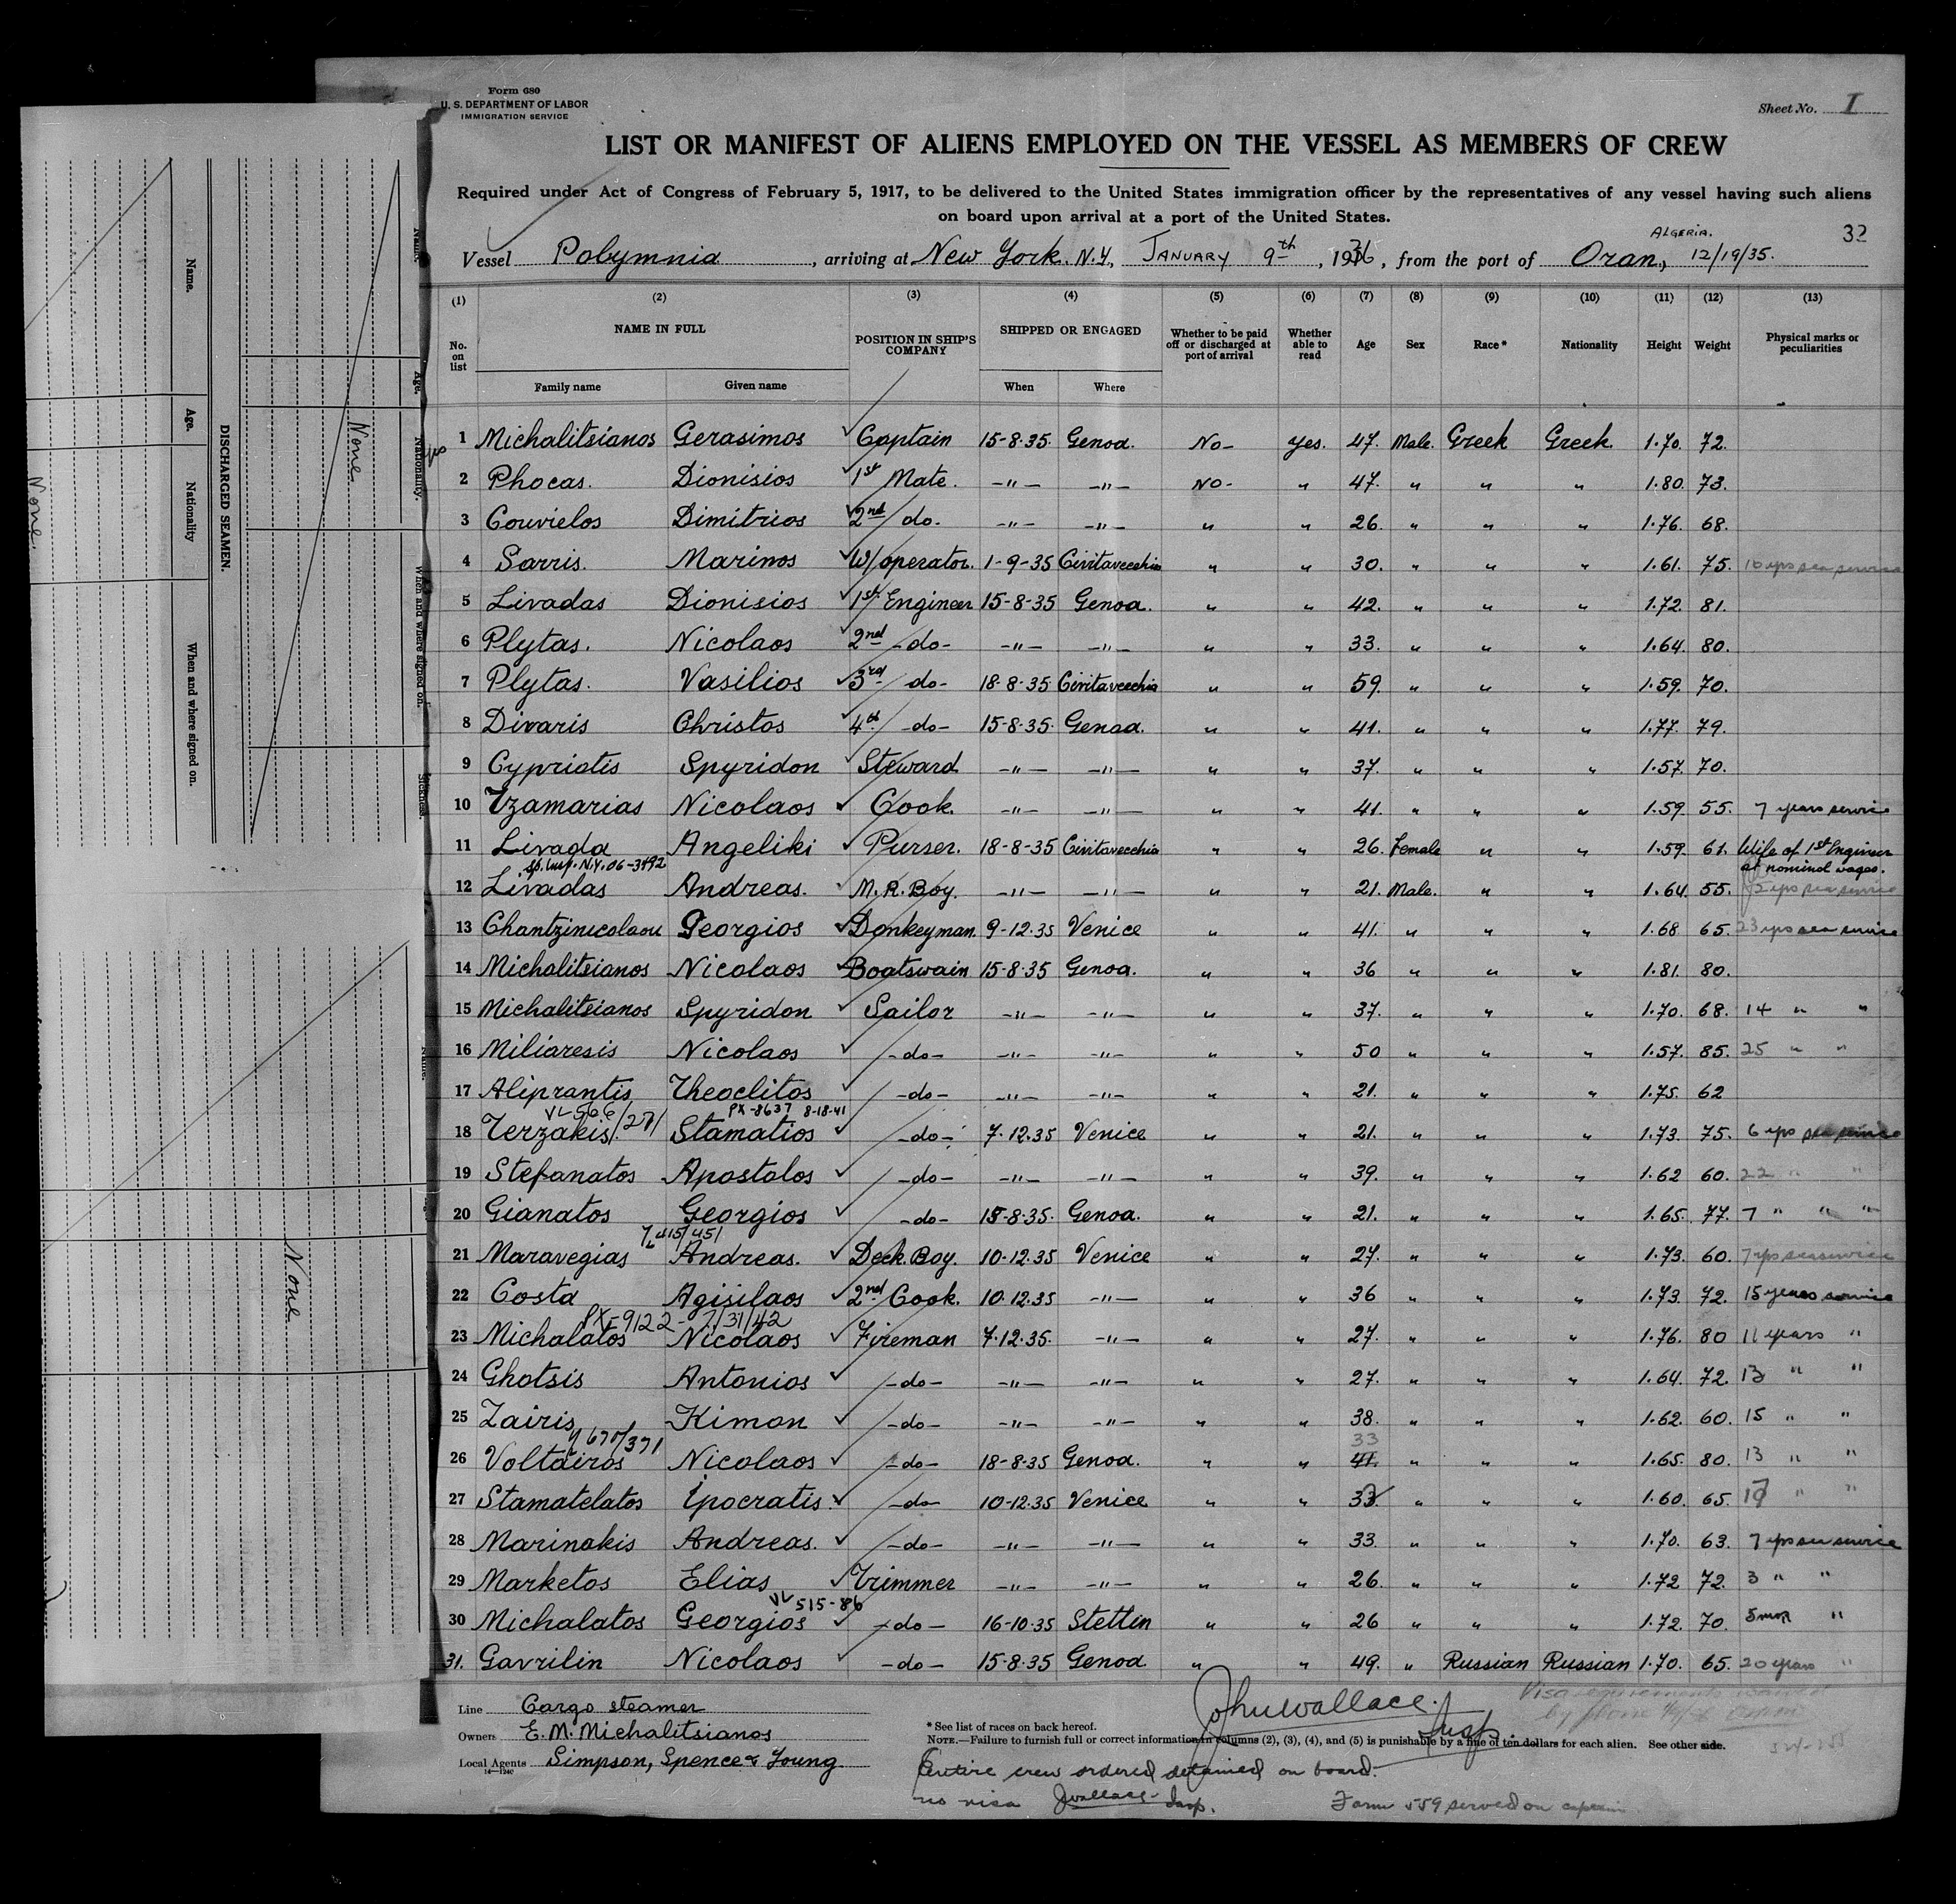 Form 680
U. S. DEPARTMENT OF LABOR
IMMIGRATION SERVICE
Sheet No. I
LIST OR MANIFEST OF ALIENS EMPLOYED ON THE VESSEL AS MEMBERS OF CREW
Required under Act of Congress of February 5, 1917, to be delivered to the United States immigration officer by the representatives of any vessel having such aliens
on board upon arrival at a port of the United States.
ALGERIA.
32
Vessel Polymnia, arriving at New York. N.Y., JANUARY 9th, 1936, from the port of Oran, 12/19/35.
(1) (2) (3) (4) (5) (6) (7) (8) (9) (10) (11) (12) (13)
No. on list NAME IN FULL POSITION IN SHIP'S COMPANY SHIPPED OR ENGAGED Whether to be paid off or discharged at port of arrival Whether able to read Age Sex Race* Nationality Height Weight Physical marks or peculiarities
Family name Given name When Where
1 Michalitsianos Gerasimos Captain 15-8-35. Genoa. No- yes. 47. Male. Greek Greek 1.70. 72.
2 Phocas. Dionisios 1st Mate. -"- -"- No- " 47. " " " 1.80. 73.
3 Couvielos Dimitrios 2nd do. -"- -"- " " 26. " " " 1.76. 68.
4 Sarris. Marinos W/operator. 1-9-35 Civitavecchia " " 30. " " " 1.61. 75. 10 yrs sea service
5 Livadas Dionisios 1st Engineer 15-8-35 Genoa. " " 42. " " " 1.72. 81.
6 Plytas. Nicolaos 2nd -do- -"- -"- " " 33. " " " 1.64. 80.
7 Plytas. Vasilios 3rd do- 18-8-35 Civitavecchia " " 59. " " " 1.59. 70.
8 Divaris Christos 4th -do- 15-8-35. Genoa. " " 41. " " " 1.77. 79.
9 Cypriotis Spyridon Steward -"- -"- " " 37. " " " 1.57. 70.
10 Tzamarias Nicolaos Cook. -"- -"- " " 41. " " " 1.59. 55. 7 years service
11 Livada Angeliki Purser. 18-8-35 Civitavecchia " " 26. Female " " 1.59. 61. Wife of 1st Engineer
sp. insp. N.Y. 06-3492 at nominal wages.
12 Livadas Andreas. M.R. Boy. -"- -"- " " 21. Male. " " 1.64. 55. yrs sea service
13 Chantzinicolaou Georgios Donkeyman. 9-12-35 Venice " " 41. " " " 1.68. 65. 23 yrs sea service
14 Michalitsianos Nicolaos Boatswain 15-8-35 Genoa. " " 36 " " " 1.81. 80.
15 Michalitsianos Spyridon Sailor -"- -"- " " 37. " " " 1.70. 68. 14 " "
16 Miliaresis Nicolaos -do- -"- -"- " " 50 " " " 1.57. 85. 25 " "
17 Aliprantis Theoclitos -do- -"- -"- " " 21. " " " 1.75. 62
VL 566/271 PX-8637 8-18-41
18 Terzakis. Stamatios -do- 7-12-35 Venice " " 21. " " " 1.73. 75. 6 yrs sea service
19 Stefanatos Apostolos -do- -"- -"- " " 39. " " " 1.62 60. 22 " "
20 Gianatos Georgios -do- 15-8-35. Genoa. " " 21. " " " 1.65. 77. 7 " " "
415/451
21 Maravegias Andreas. Deck. Boy. 10-12-35 Venice " " 27. " " " 1.73. 60. 7 yrs sea service
22 Costa Agisilaos 2nd Cook. 10-12-35 -"- " " 36 " " " 1.73. 72. 15 years service
PX-9122-7/31/42
23 Michalatos Nicolaos Fireman 7-12-35. -"- " " 27. " " " 1.76. 80 11 years "
24 Ghotsis Antonios -do- -"- -"- " " 27. " " " 1.64. 72. 13 " "
25 Zairis Kimon -do- -"- -"- " " 38. " " " 1.62. 60. 15 " "
33
26 Voltairos Nicolaos -do- 18-8-35 Genoa. " " 41. " " " 1.65. 80. 13 " "
27 Stamatelatos Ipocratis. -do- 10-12-35 Venice " " 33. " " " 1.60. 65. " "
28 Marinakis Andreas. -do- -"- -"- " " 33. " " " 1.70. 63. 7 yrs sea service
29 Marketos Elias Trimmer -"- -"- " " 26. " " " 1.72 72. 3 " "
VL 515-86
30 Michalatos Georgios -do- 16-10-35 Stettin " " 26 " " " 1.72. 70. 5 mos "
31. Gavrilin Nicolaos -do- 15-8-35 Genoa " " 49. " Russian Russian 1.70. 65. 20 years "
Line Cargo steamer
Owners E. M. Michalitsianos
Local Agents Simpson, Spence & Young
14—1240
John Wallace.
Insp.
* See list of races on back hereof.
NOTE.—Failure to furnish full or correct information in columns (2), (3), (4), and (5) is punishable by a fine of ten dollars for each alien. See other side.
Entire crew ordered detained on board.
no visa JWallace Insp.
Form 559 served on captain
DISCHARGED SEAMEN.
Name. Age. Nationality When and where signed on.
None.
Name. Age. Nationality. When and where signed on. Sickness.
None
None